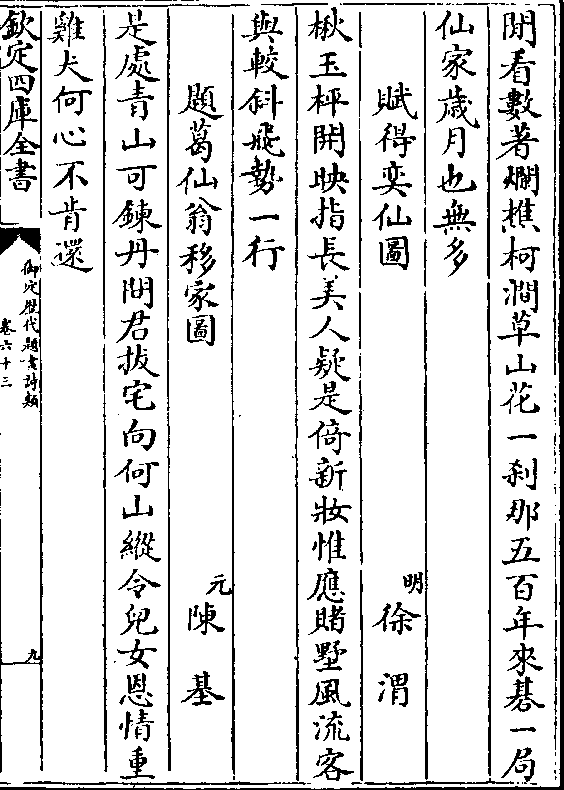 閒看數著爛樵柯澗草山花一刹那五百年來棊一局
仙家歲月也無多
賦得奕仙圖
明徐渭
楸玉枰開映指長美人疑是倚新妝惟應賭墅風流客
與較斜飛勢一行
題葛仙翁移家圖
元陳基
是處青山可鍊丹問君拔宅向何山縱令兒女恩情重
雞犬何心不肯還
欽定四庫全書
御定歷代題畫詩類
卷六十三
九